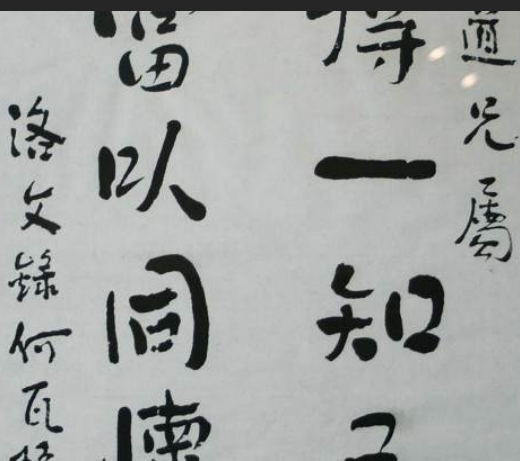 道兄屬
得一知
當以同懷
洛文錄何瓦